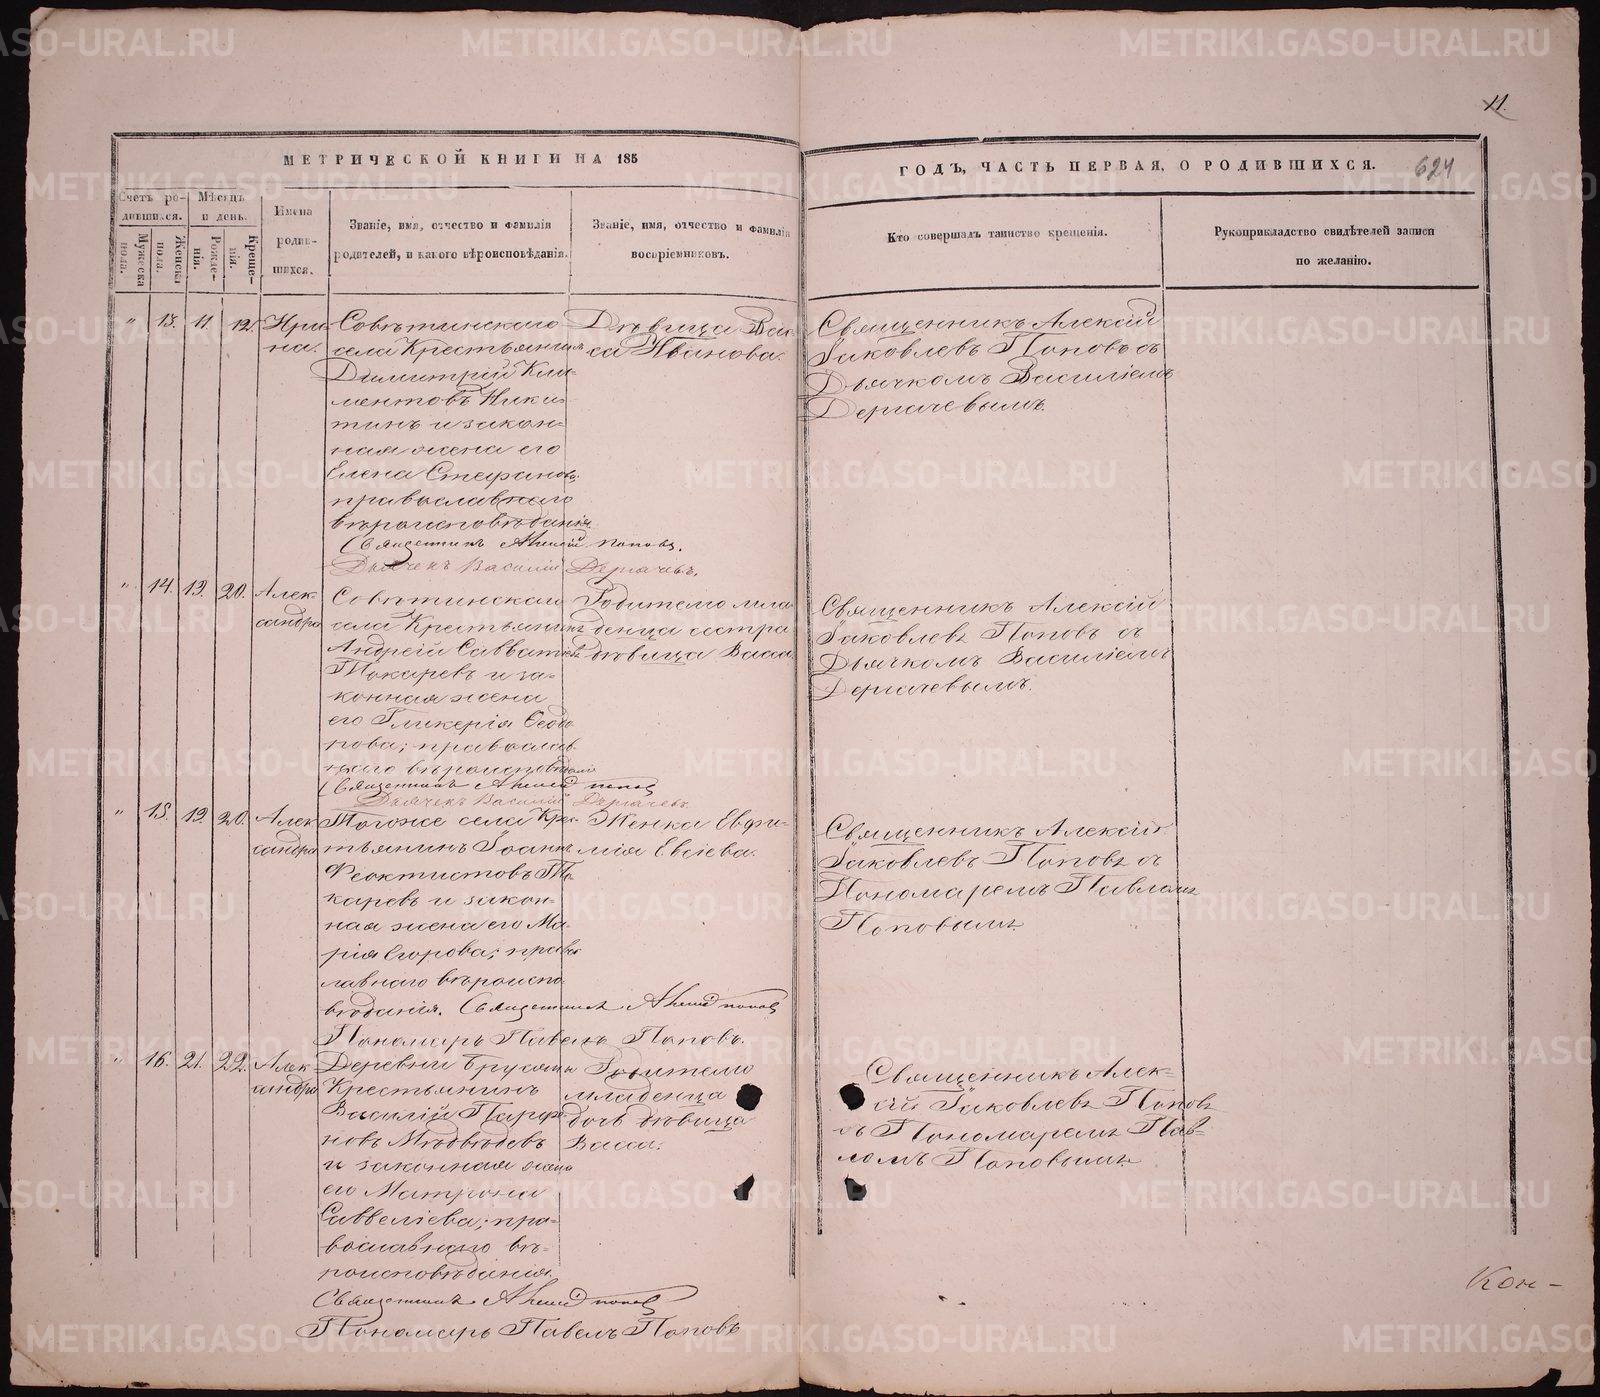 11.
МЕТРИЧЕСКОЙ КНИГИ НА 185
ГОДЪ, ЧАСТЬ ПЕРВАЯ, О РОДИВШИХСЯ.
624
Счетъ ро-
дившихся.
Мужеска
пола.
Женска
пола.
Мѣсяцъ
и день.
Рожде-
нія.
Креще-
нія.
Имена
родив-
шихся.
Званіе, имя, отчество и фамилія
родителей, и какого вѣроисповѣданія.
Званіе, имя, отчество и фамилія
воспріемниковъ.
Кто совершалъ таинство крещенія.
Рукоприкладство свидѣтелей записи
по желанію.
" 13. 11. 12. Ири-
на.
Совѣтинскаго
села Крестьянинъ
Димитрій Кли-
ментовъ Ники-
тинъ и закон-
ная жена его
Елена Стефанов.
православнаго
вѣроисповѣданія.
Священникъ Алексій Поповъ.
Дьячекъ Василій Дергачевъ.
Дѣвица Вас-
са Иванова.
Священникъ Алексій
Іаковлевъ Поповъ съ
Дьячкомъ Василіемъ
Дергачевымъ.
" 14. 13. 20. Алек-
сандра
Совѣтинскаго
села Крестьянинъ
Андрей Савватіевъ
Токаревъ и за-
конная жена
его Гликерія Ѳеодо
нова; православ-
наго вѣроисповѣданія
Священникъ Алексій Поповъ
Дьячекъ Василій Дергачевъ.
Родителю мла
денца сестра
дѣвица Васса
Священникъ Алексій
Іаковлевъ Поповъ съ
Дьячкомъ Василіемъ
Дергачевымъ.
" 15. 19. 20. Алек
сандра
Тогоже села Крес-
тьянинъ Іоаннъ
Феоктистовъ То
каревъ и закон-
ная жена его Ма-
рія Егорова; право
славнаго вѣроиспо
вѣданія. Священникъ Алексій Поповъ
Пономарь Павелъ Поповъ.
Женка Евфи-
мія Евсіева.
Священникъ Алексій
Іаковлевъ Поповъ съ
Пономаремъ Павломъ
Поповымъ
" 16. 21. 22. Алек
сандра
Деревни Брусяны
Крестьянинъ
Василій Парфе
новъ Медвѣдевъ
и законная жена
его Матрона
Савеліева; пра-
вославнаго вѣ-
роисповѣданія.
Священникъ Алексій Поповъ
Пономарь Павелъ Поповъ
Родителю
младенца
дочь дѣвица
Васса.
Священникъ Алек-
сій Іаковлевъ Поповъ
съ Пономаремъ Пав-
ломъ Поповымъ
Кон-
METRIKI.GASO-URAL.RU